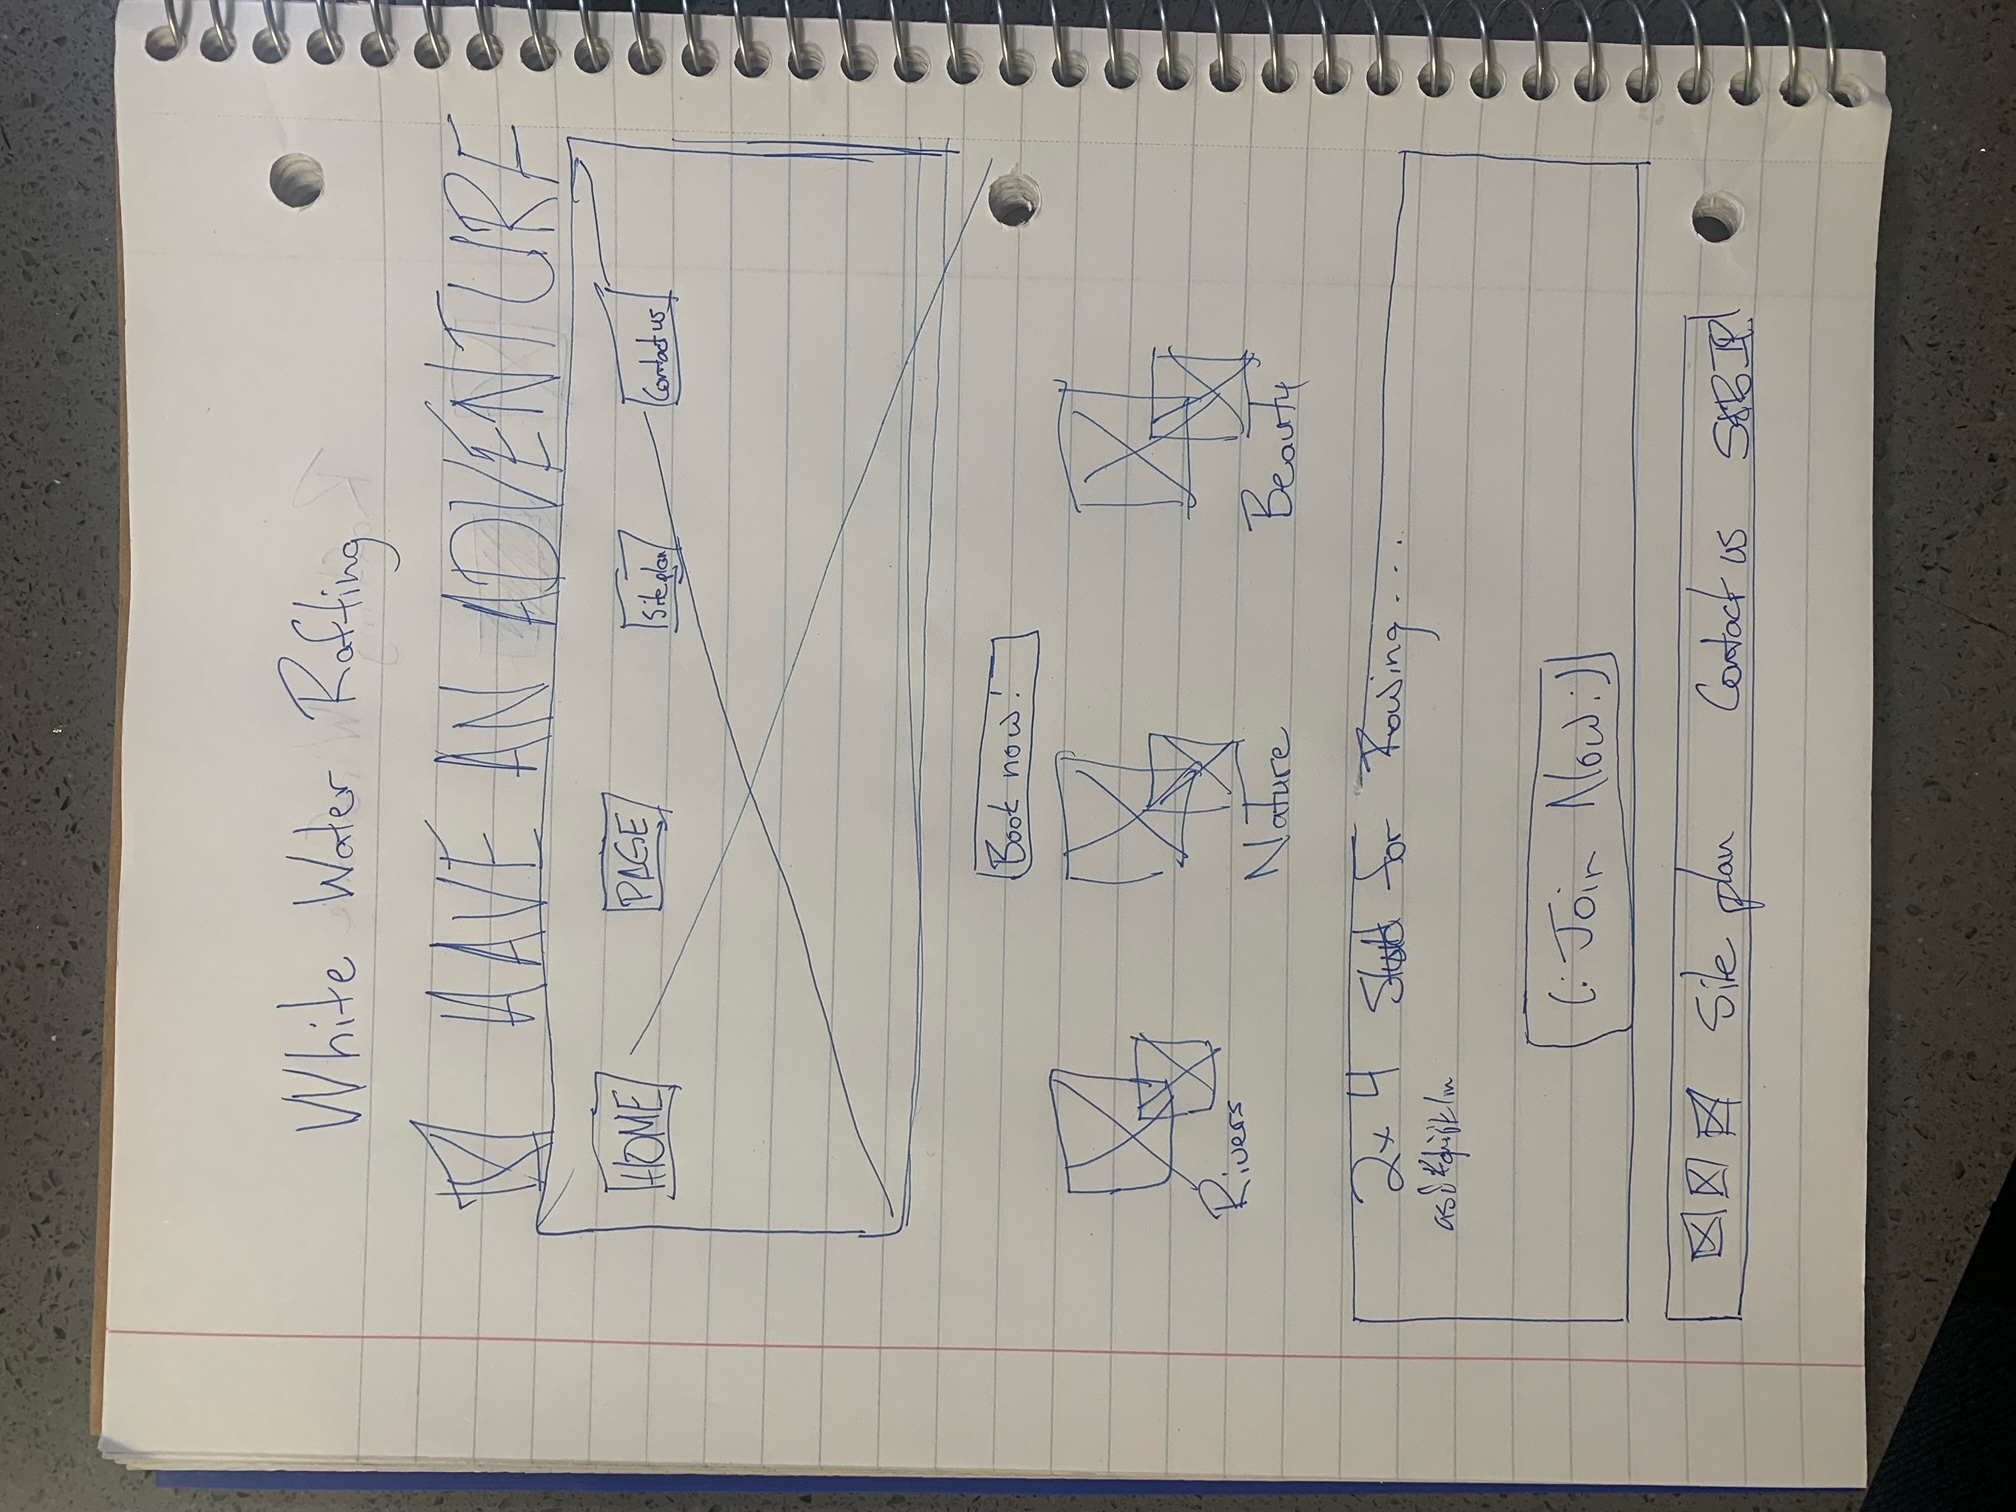 White Water Rafting
HAVE AN ADVENTURE
HOME PAGE Site plan Contact us
Book now!
Rivers Nature Beauty
2x4 for Rowing....
(: Join Now :)
Site plan Contact us